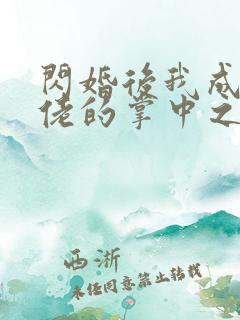 閃婚後我成
佬的掌中之
西淅
未任同意禁止转载